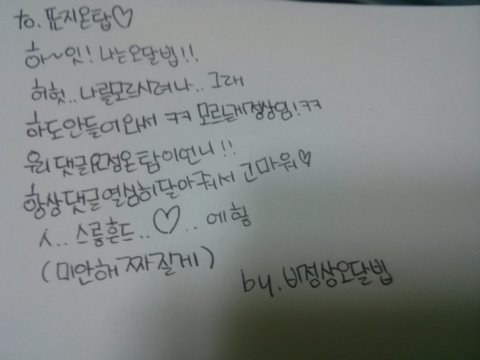 to. 또지온탑♡
하~잇! 나는오달빕!!
허헛.. 나를모르시려나.. 그래
하도안들어와서 ㅋㅋ 모르는게정상임!ㅋㅋ
우리댓글요정온탑이언니!!
항상댓글열심히달아줘서 고마워♡
ㅅ..스릉흔드..♡..에헴
(미안해 짜질게)
by. 비정상오달빕